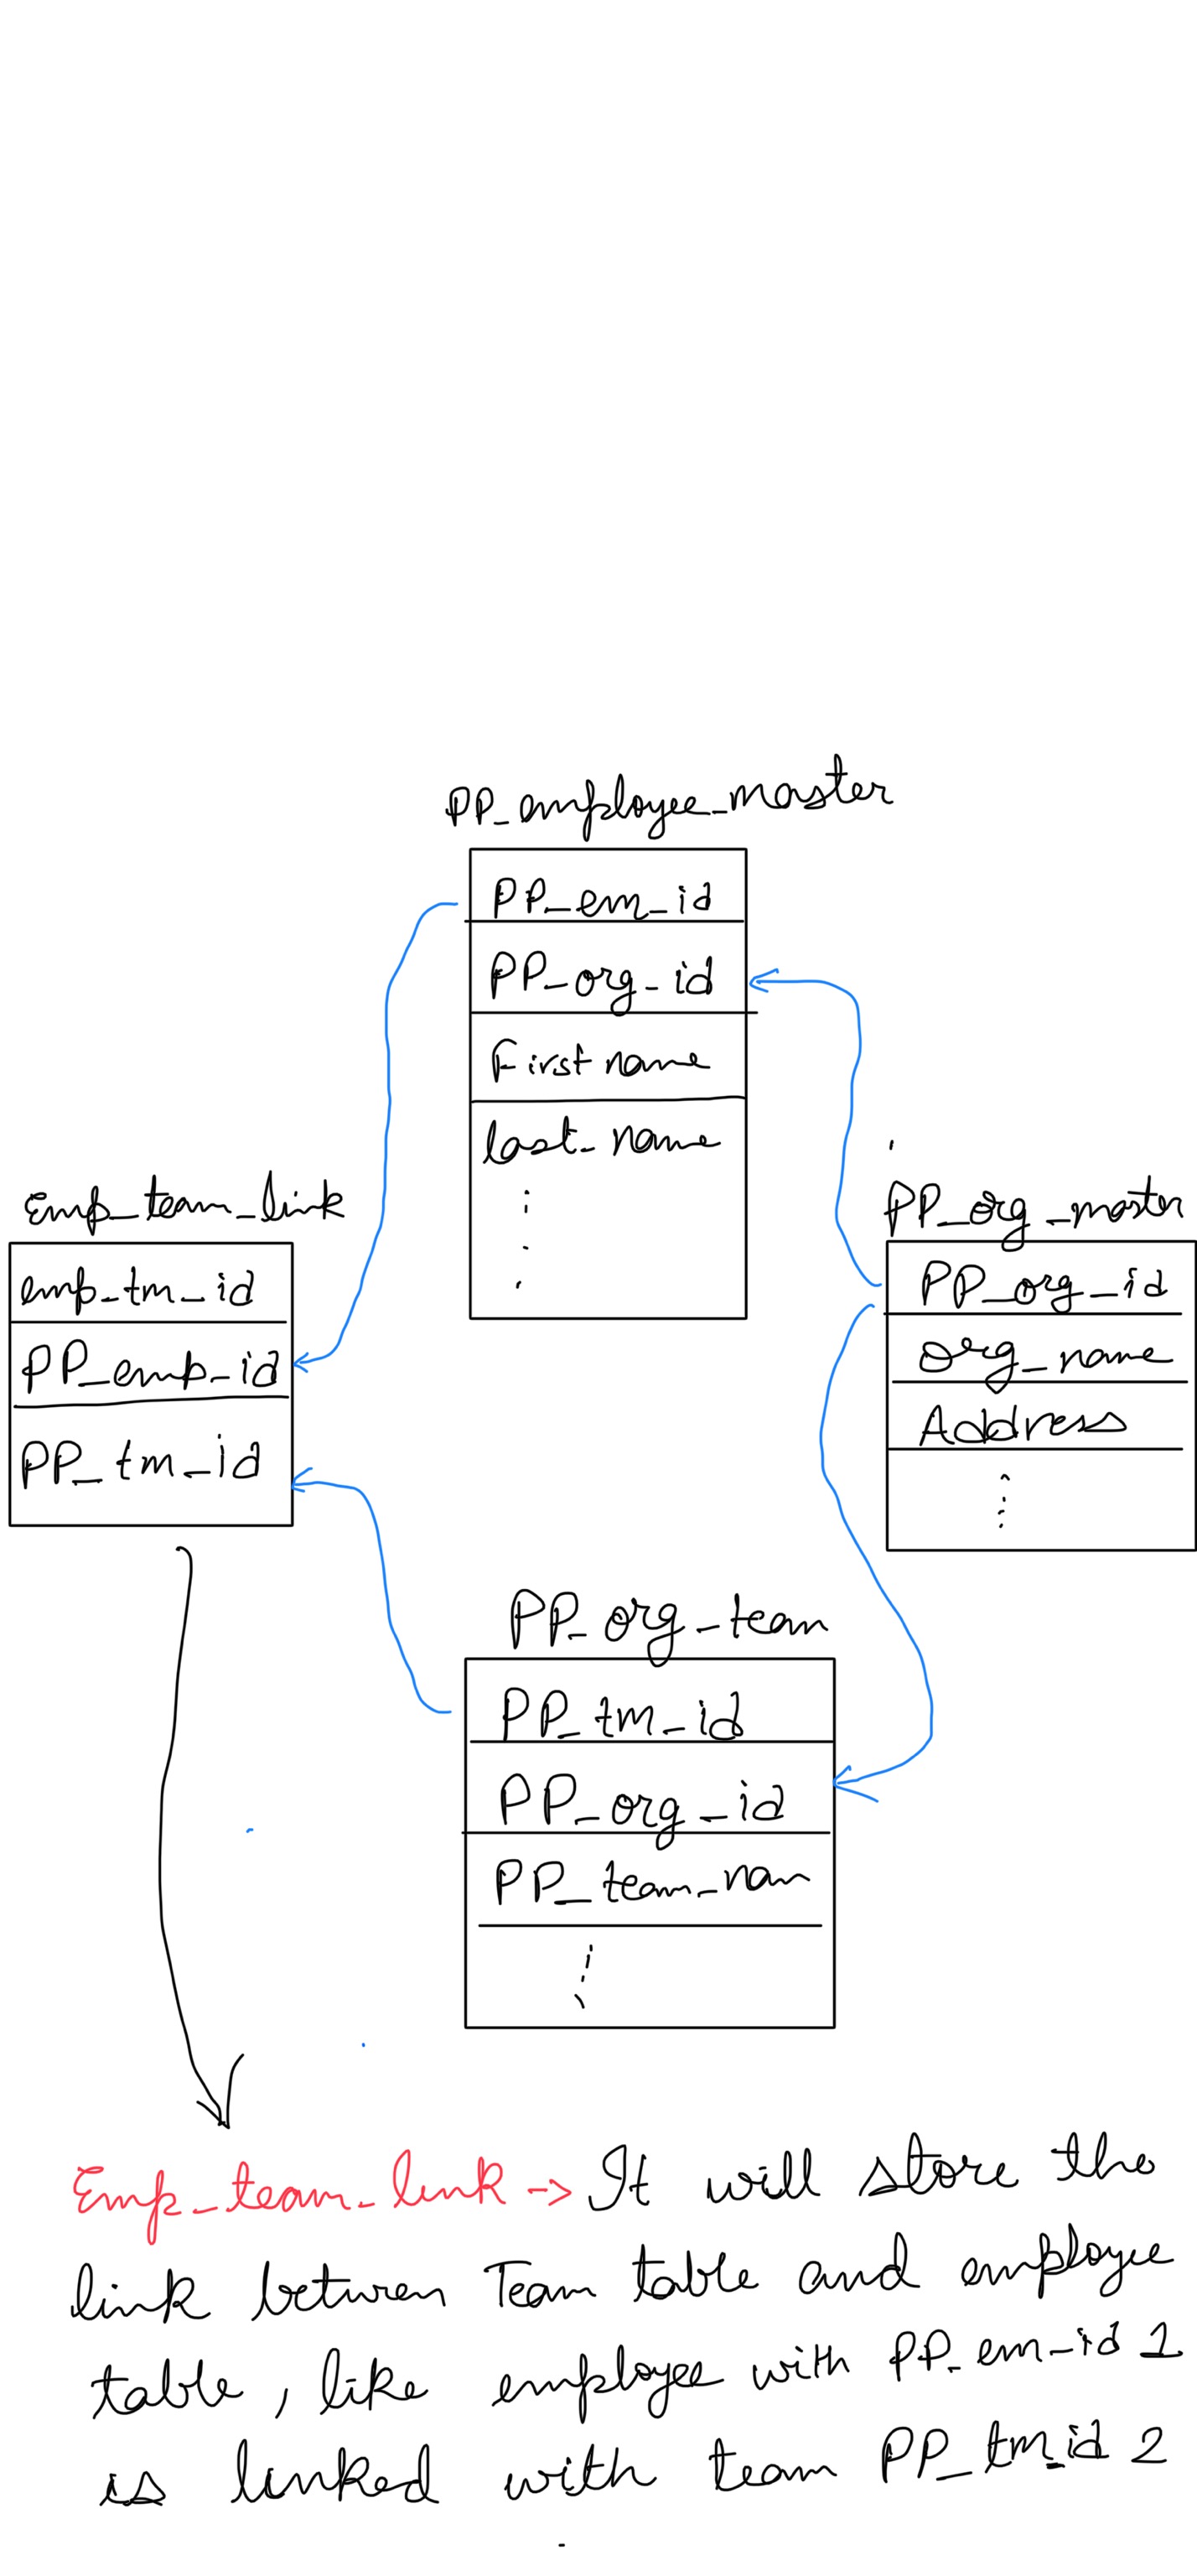 PP_employee_master
PP_em_id
PP_org_id
First name
last_name
Emp_team_link
emp_tm_id
PP_emp_id
PP_tm_id
PP_org_master
PP_org_id
Org_name
Address
PP_org_team
PP_tm_id
PP_org_id
PP_team_nam
Emp_team_link -> It will store the
link between Team table and employee
table, like employee with PP_em_id 1
is linked with team PP_tm_id 2